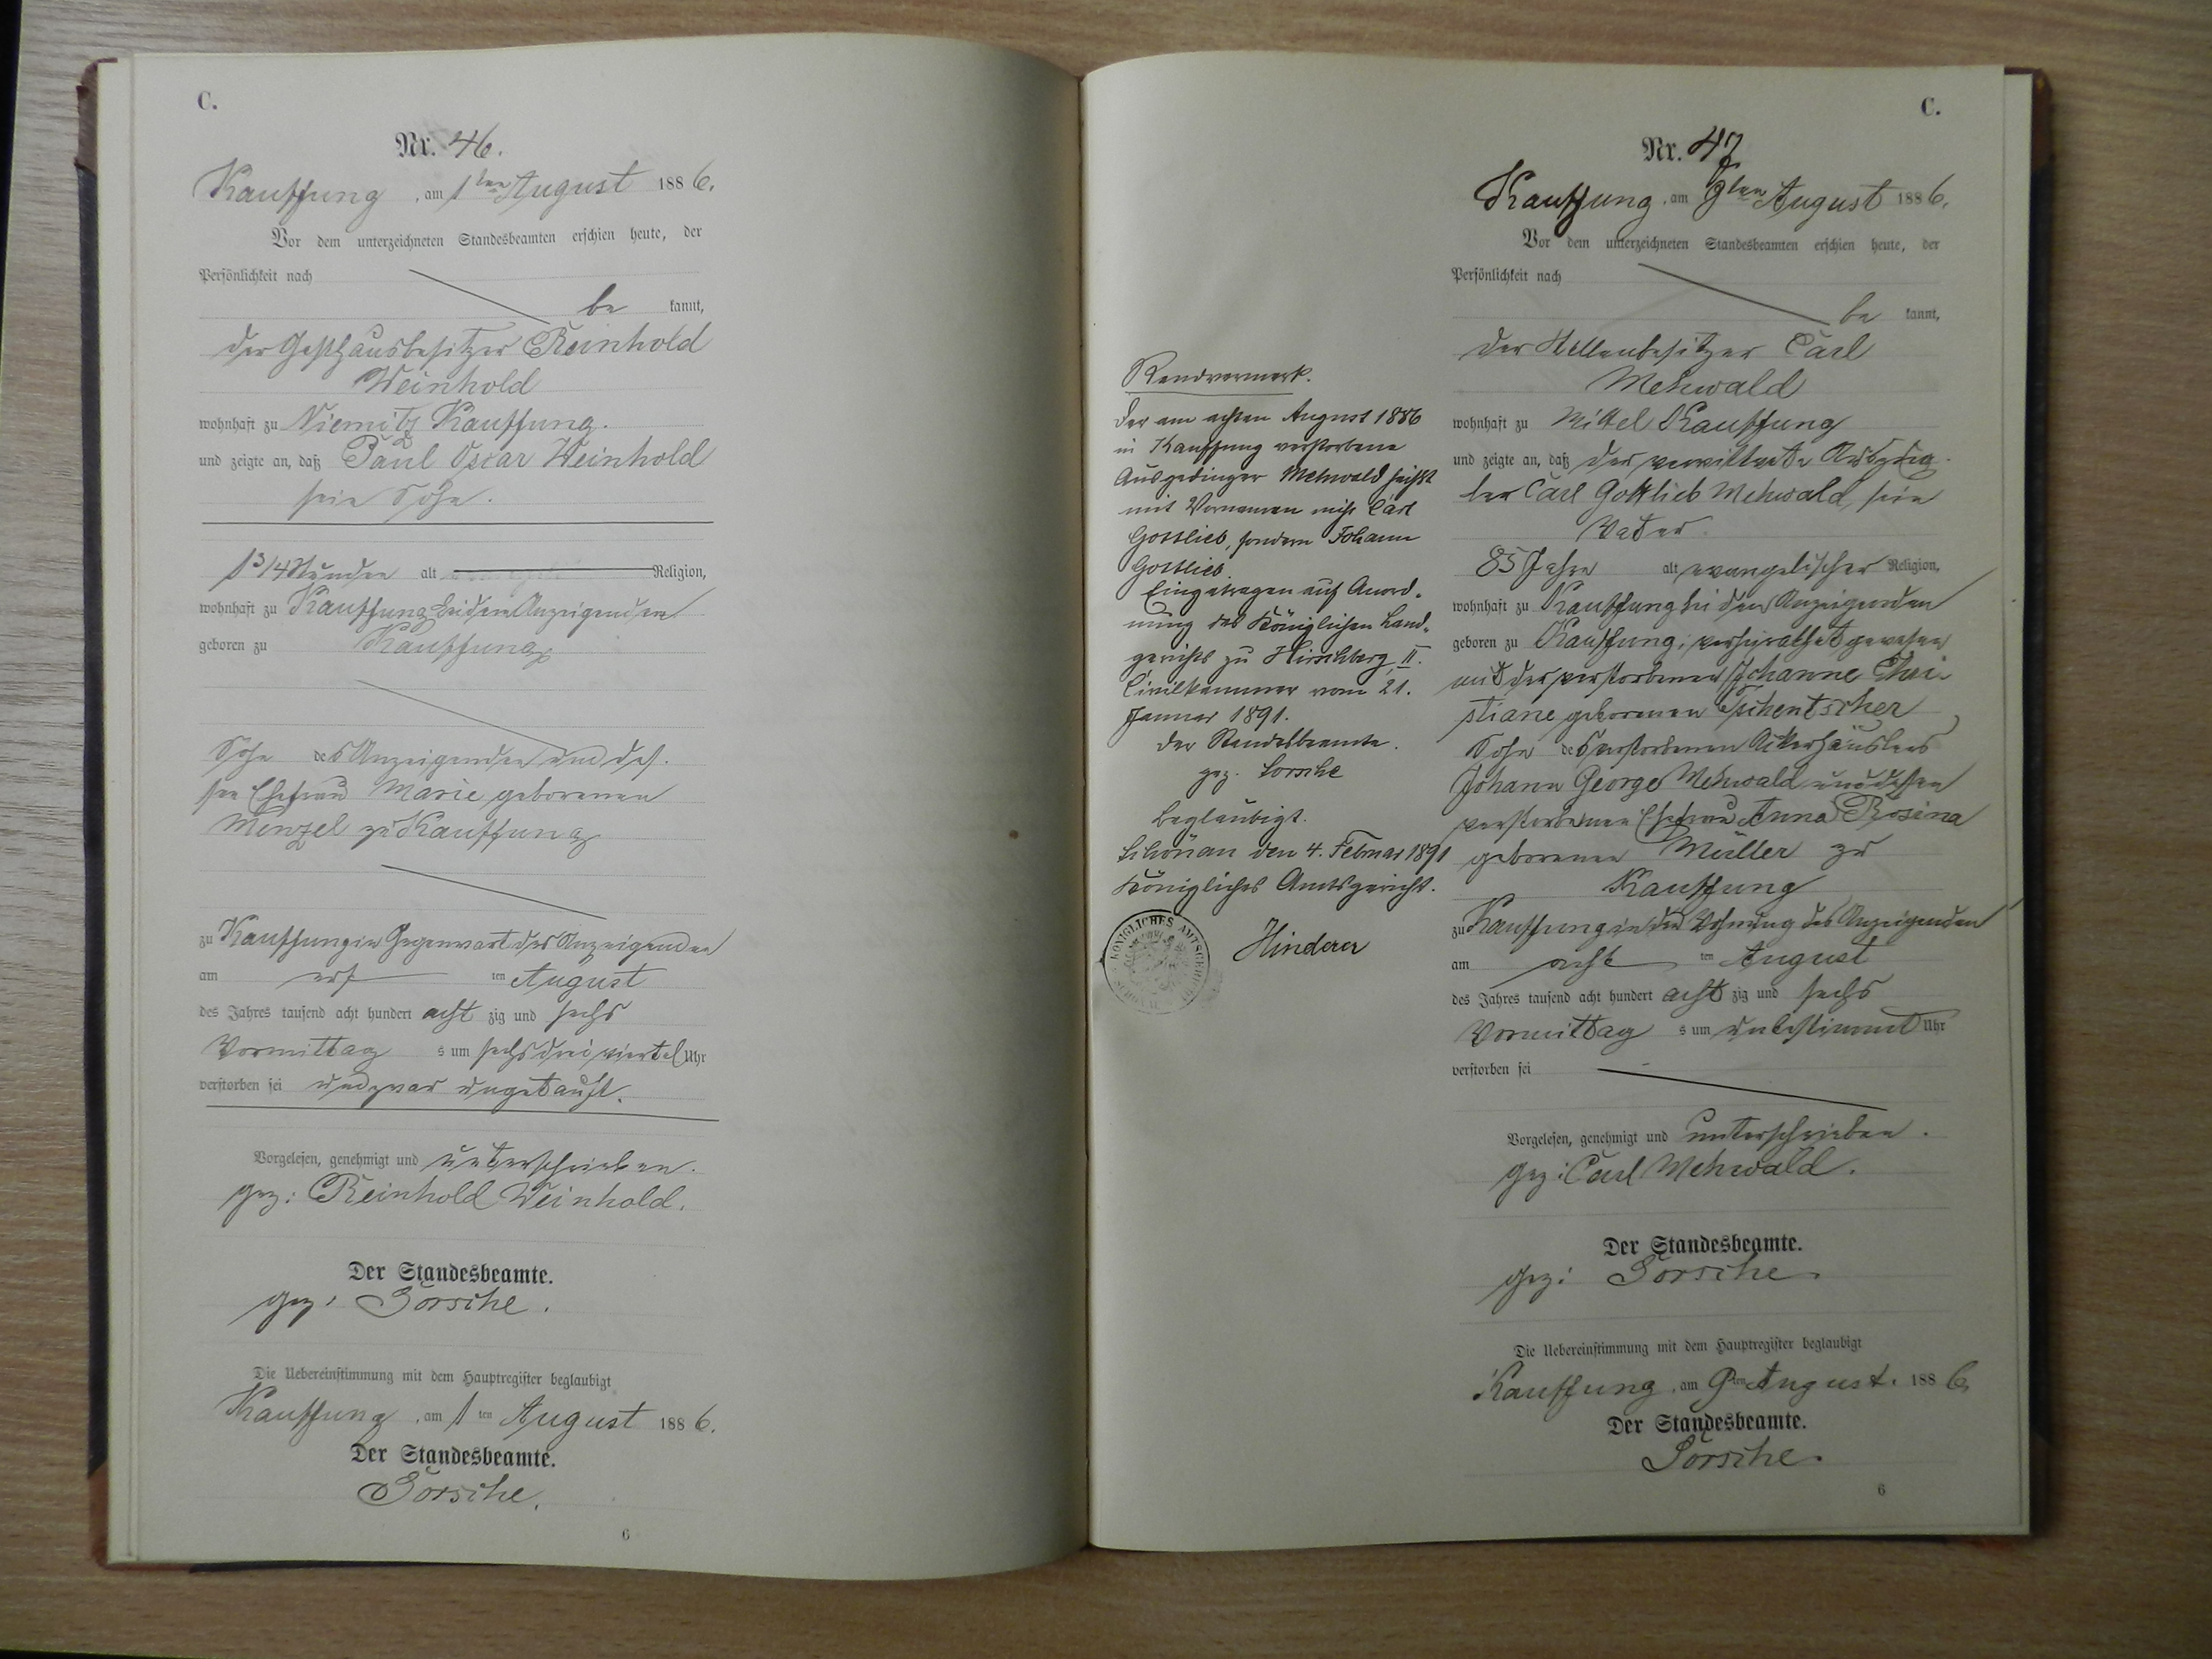 C.
Nr. 46.
Kauffung, am 1ten August 1886.
Vor dem unterzeichneten Standesbeamten erschien heute, der
Persönlichkeit nach
be kannt,
der Gasthausbesitzer Reinhold
Weinhold
wohnhaft zu Niemitz Kauffung.
und zeigte an, daß Paul Oscar Weinhold
sein Sohn.
1 3/4 Stunden alt Religion,
wohnhaft zu Kauffung bei dem Anzeigenden
geboren zu Kauffung
Sohn des Anzeigenden und des-
sen Ehefrau Marie geborenen
Menzel zu Kauffung
zu Kauffung in Gegenwart des Anzeigenden
am ersten August
des Jahres tausend acht hundert acht zig und sechs
Vormittag s um sechs drei viertel Uhr
verstorben sei und zwar ungetauft.
Vorgelesen, genehmigt und unterschrieben.
gez: Reinhold Weinhold.
Der Standesbeamte.
gez: Sorsche.
Die Uebereinstimmung mit dem Hauptregister beglaubigt
Kauffung, am 1ten August 1886.
Der Standesbeamte.
Sorsche.
6
C.
Nr. 47
Kauffung, am 9ten August 1886.
Vor dem unterzeichneten Standesbeamten erschien heute, der
Persönlichkeit nach
be kannt,
der Stellenbesitzer Carl
Mehwald
wohnhaft zu Mittel Kauffung
und zeigte an, daß der verwittwete Auszüg-
ler Carl Gottlieb Mehwald, sein
Vater.
85 Jahre alt evangelischer Religion,
wohnhaft zu Kauffung bei dem Anzeigenden
geboren zu Kauffung, verheirathet gewesen
mit der verstorbenen Johanne Chri-
stiane geborenen Tschentscher
Sohn des verstorbenen Ackerhäuslers
Johann George Mehwald und dessen
verstorbenen Ehefrau Anna Rosina
geborenen Müller zu
Kauffung
zu Kauffung in der Wohnung des Anzeigenden
am achten August
des Jahres tausend acht hundert acht zig und sechs
Vormittag s um unbestimmt Uhr
verstorben sei
Vorgelesen, genehmigt und unterschrieben.
gez: Carl Mehwald.
Der Standesbeamte.
gez: Sorsche.
Die Uebereinstimmung mit dem Hauptregister beglaubigt
Kauffung, am 9ten August. 1886.
Der Standesbeamte.
Sorsche.
6
Randvermerk.
Der am achten August 1886
in Kauffung verstorbene
Ausgedinger Mehwald heißt
mit Vornamen nicht Carl
Gottlieb, sondern Johann
Gottlieb.
Eingetragen auf Anord-
nung des Königlichen Land-
gerichts zu Hirschberg II.
Civilkammer vom 21.
Januar 1891.
Der Standesbeamte.
gez. Sorsche
Beglaubigt.
Schönau den 4. Februar 1891
Königliches Amtsgericht.
Hinderer
KÖNIGLICHES AMTSGERICHT